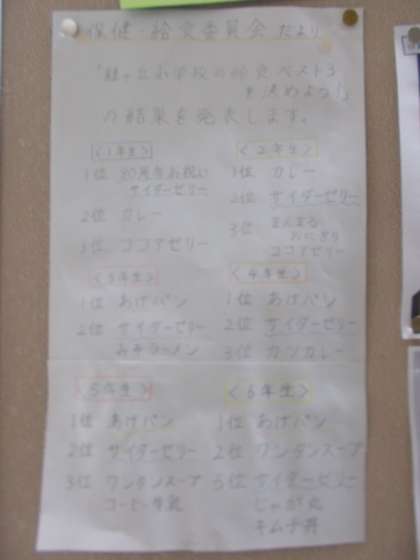 保健・給食委員会だより
小学校の給食ベスト3
を決めよう!」
の結果を発表します。
<1年生>
1位 30周年お祝い
サイダーゼリー
2位 カレー
3位 ココアゼリー
<2年生>
1位 カレー
2位 サイダーゼリー
3位
ココアゼリー
<3年生>
1位 あげパン
2位 サイダーゼリー
みそラーメン
<4年生>
1位 あげパン
2位 サイダーゼリー
3位 カツカレー
<5年生>
1位 あげパン
2位 サイダーゼリー
3位 ワンタンスープ
コーヒー牛乳
<6年生>
1位 あげパン
2位 ワンタンスープ
3位 サイダーゼリー
キムチ丼